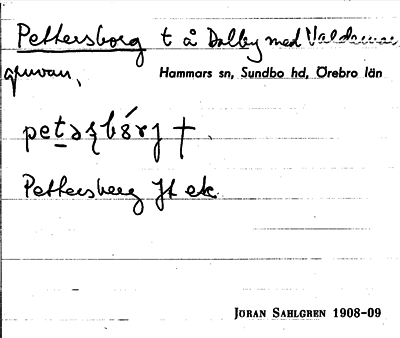 Pettersborg t å Dalby med
gruvan,
Hammars sn, Sundbo hd, Örebro län
Pettersberg Jt ek.
JÖRAN SAHLGREN 1908-09